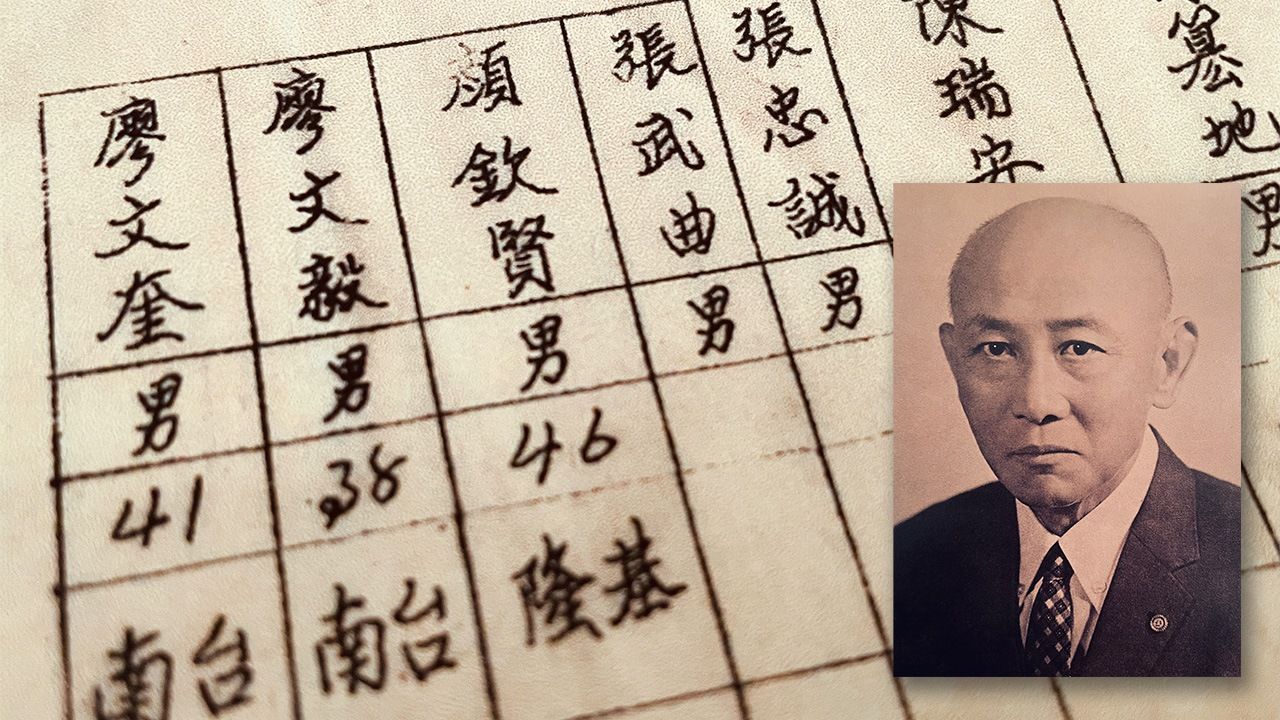 篡地
男
陳瑞安
張忠誠
男
張武曲
男
顏欽賢
男
46
基隆
廖文毅
男
38
台南
廖文奎
男
41
台南